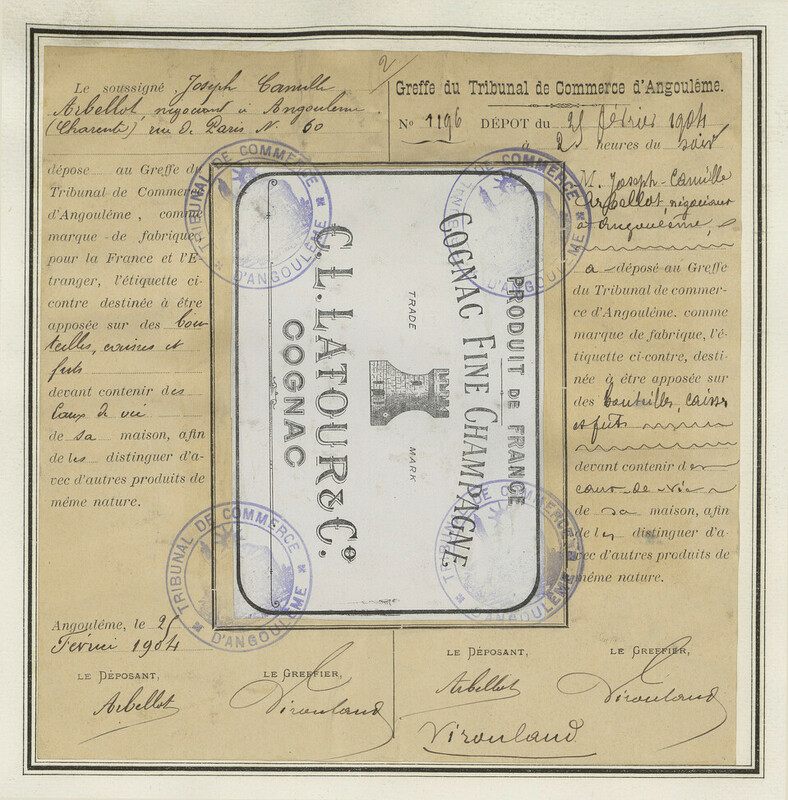 2
Le soussigné Joseph Camille
Arbellot, négociant à Angoulême
(Charente), rue de Paris N. 60
dépose au Greffe du
Tribunal de Commerce
d'Angoulême, comme
marque de fabrique
pour la France et l'É-
tranger, l'étiquette ci-
contre destinée à être
apposée sur des bou
teilles, caisses et
futs
devant contenir des
Eaux de vie
de sa maison, afin
de les distinguer d'a-
vec d'autres produits de
même nature.
Angoulême, le 25
Février 1904
LE DÉPOSANT,
Arbellot
LE GREFFIER,
Virouland
PRODUIT DE FRANCE
COGNAC FINE CHAMPAGNE
TRADE MARK
C.L. LATOUR & Cº.
COGNAC
TRIBUNAL DE COMMERCE
D'ANGOULÊME
TRIBUNAL DE COMMERCE
D'ANGOULÊME
TRIBUNAL DE COMMERCE
D'ANGOULÊME
TRIBUNAL DE COMMERCE
D'ANGOULÊME
Greffe du Tribunal de Commerce d'Angoulême.
No 1196 DÉPOT du 25 février 1904
à 2 heures du soir
M. Joseph-Camille
Arbellot, négociant
à Angoulême,
a déposé au Greffe
du Tribunal de commer-
ce d'Angoulême. comme
marque de fabrique, l'é-
tiquette ci-contre, desti-
née à être apposée sur
des bouteilles, caisses
et futs
devant contenir des
eaux-de-vie
de sa maison, afin
de les distinguer d'a-
vec d'autres produits de
même nature.
LE DÉPOSANT,
Arbellot
LE GREFFIER,
Virouland
Virouland